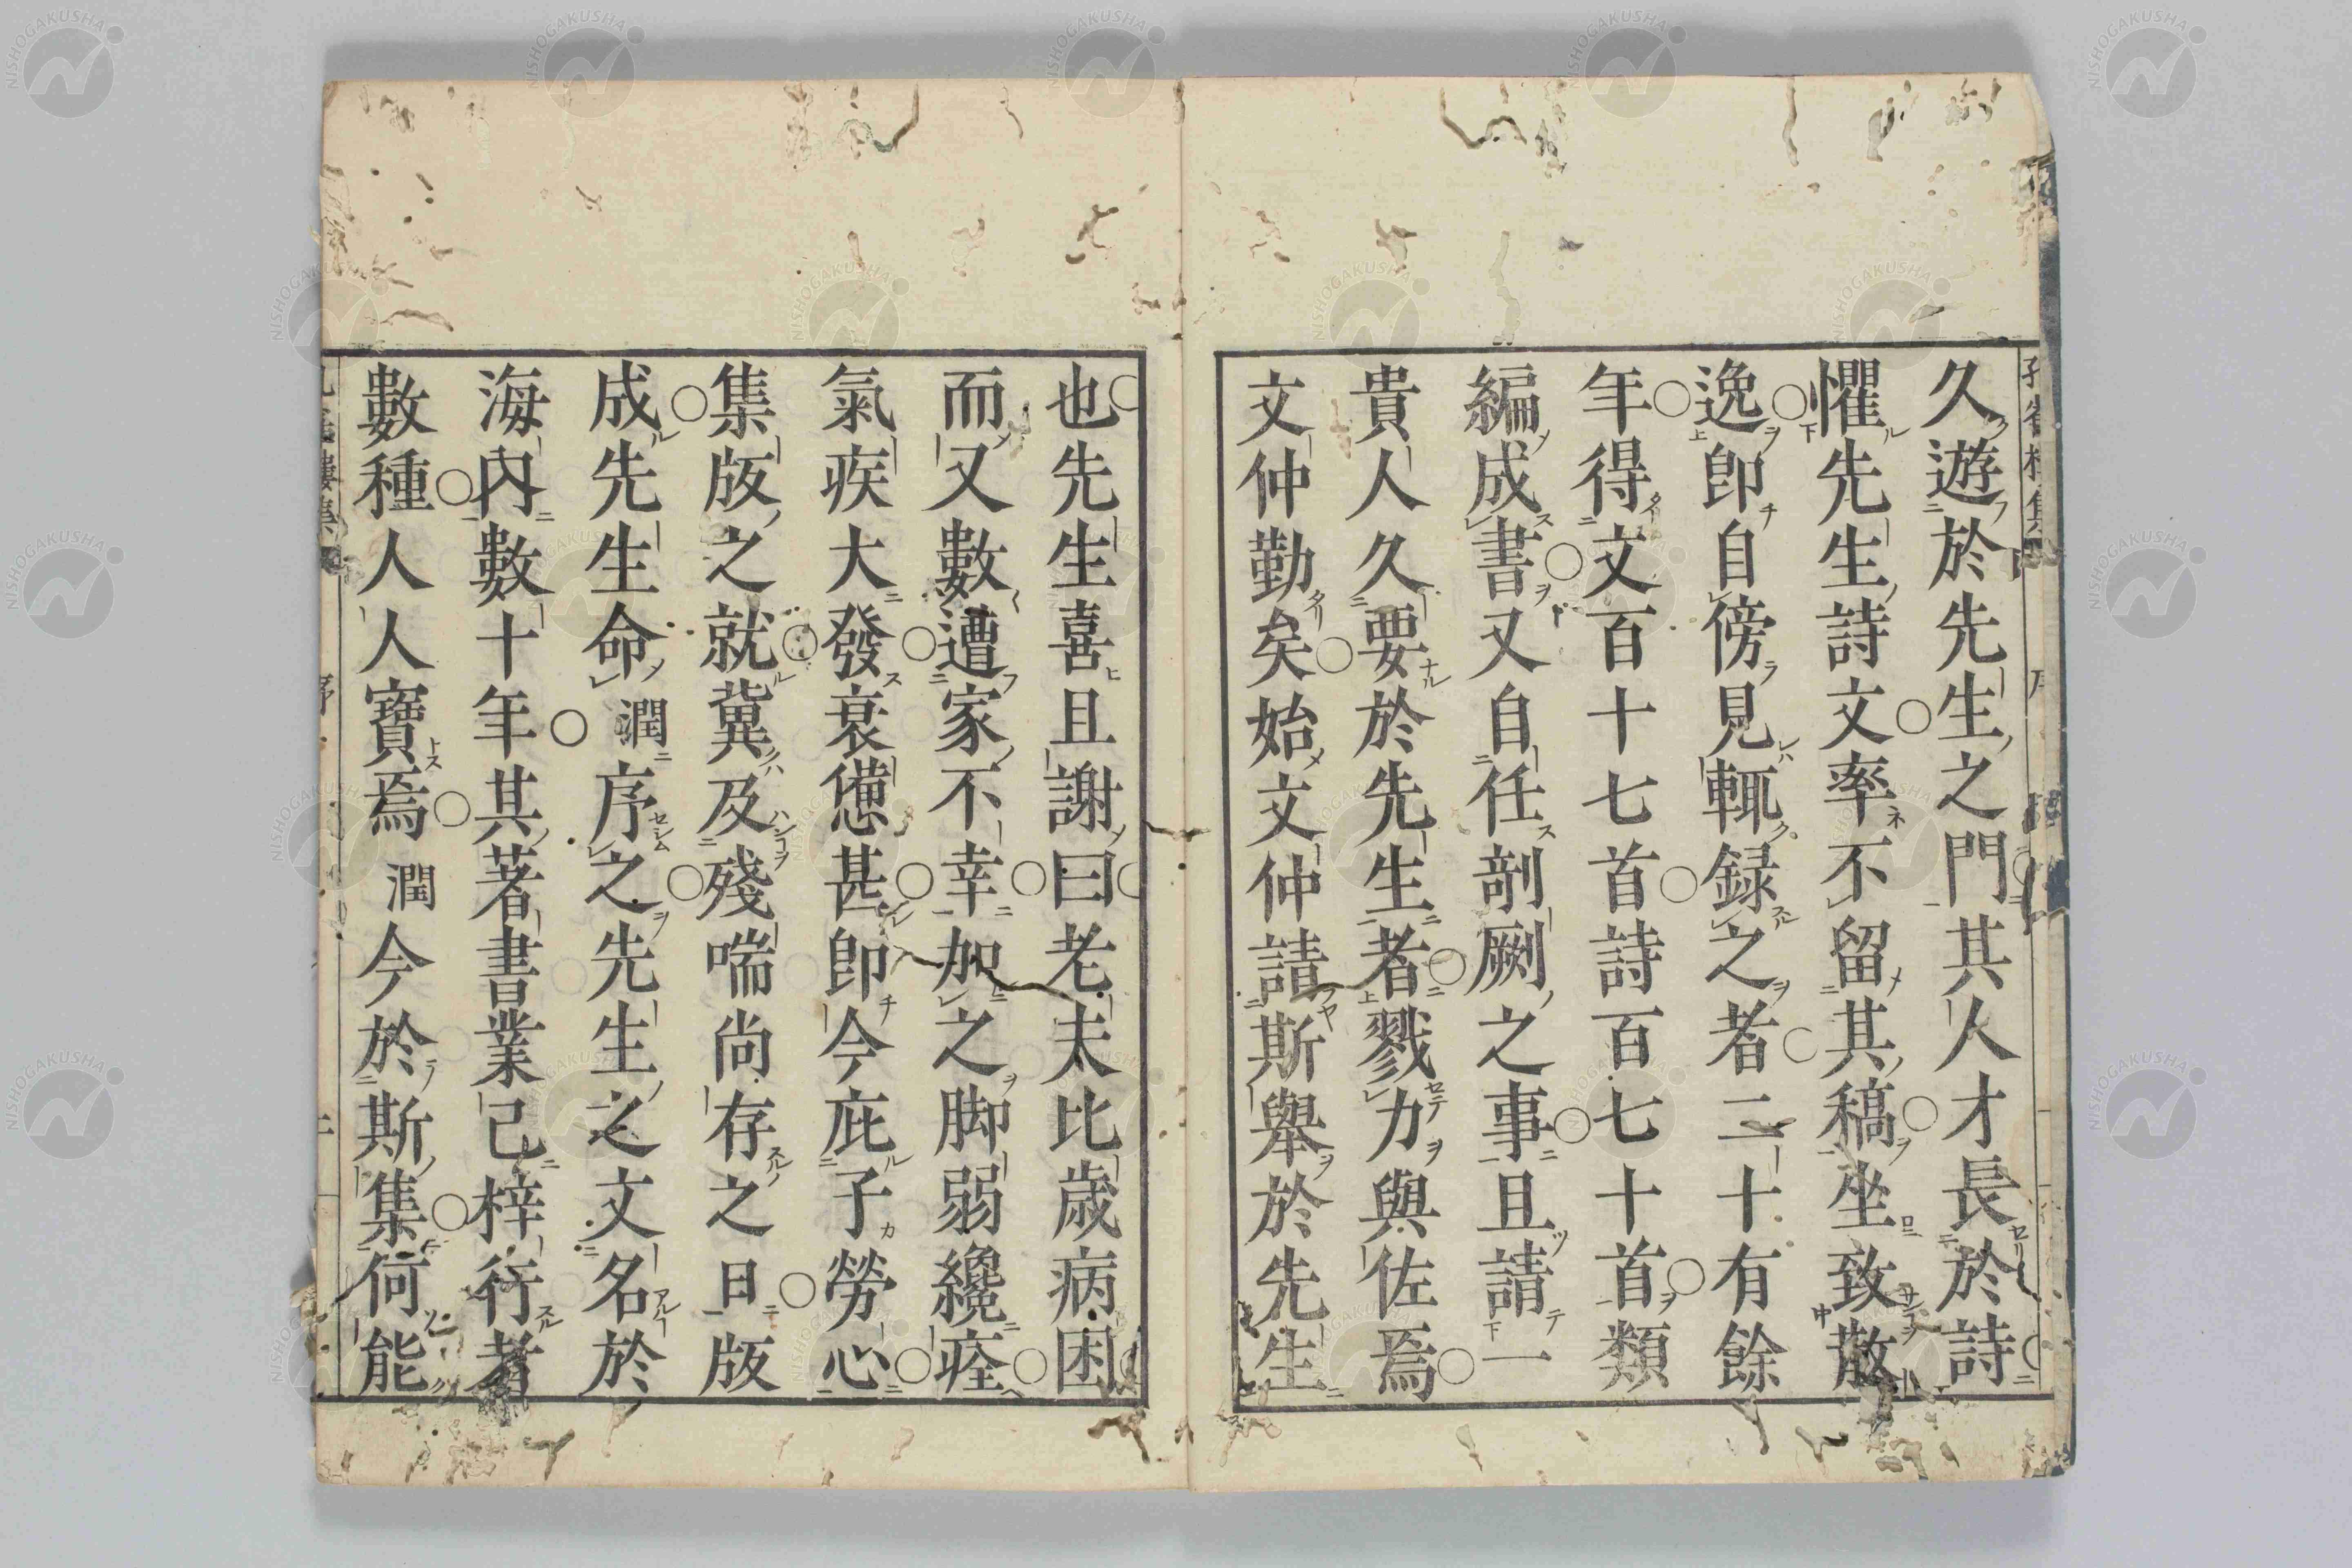 久遊於先生之門其人才長於詩
懼先生詩文率不留其稿坐致散
逸卽自傍見輒録之者二十有餘
年得文百十七首詩百七十首類
編成書又自任剞劂之事且請一
貴人久要於先生者戮力與佐焉
文仲勤矣始文仲請斯舉於先生
也先生喜且謝曰老夫比歲病困
而又數遭家不幸加之脚弱纔痊
氣疾大發衰憊甚卽今庇子勞心
集版之就冀及殘喘尚存之日版
成先生命潤序之先生之文名於
海內數十年其著書業已梓行者
數種人人寶焉潤今於斯集何能
序
NISHOGAKUSHA